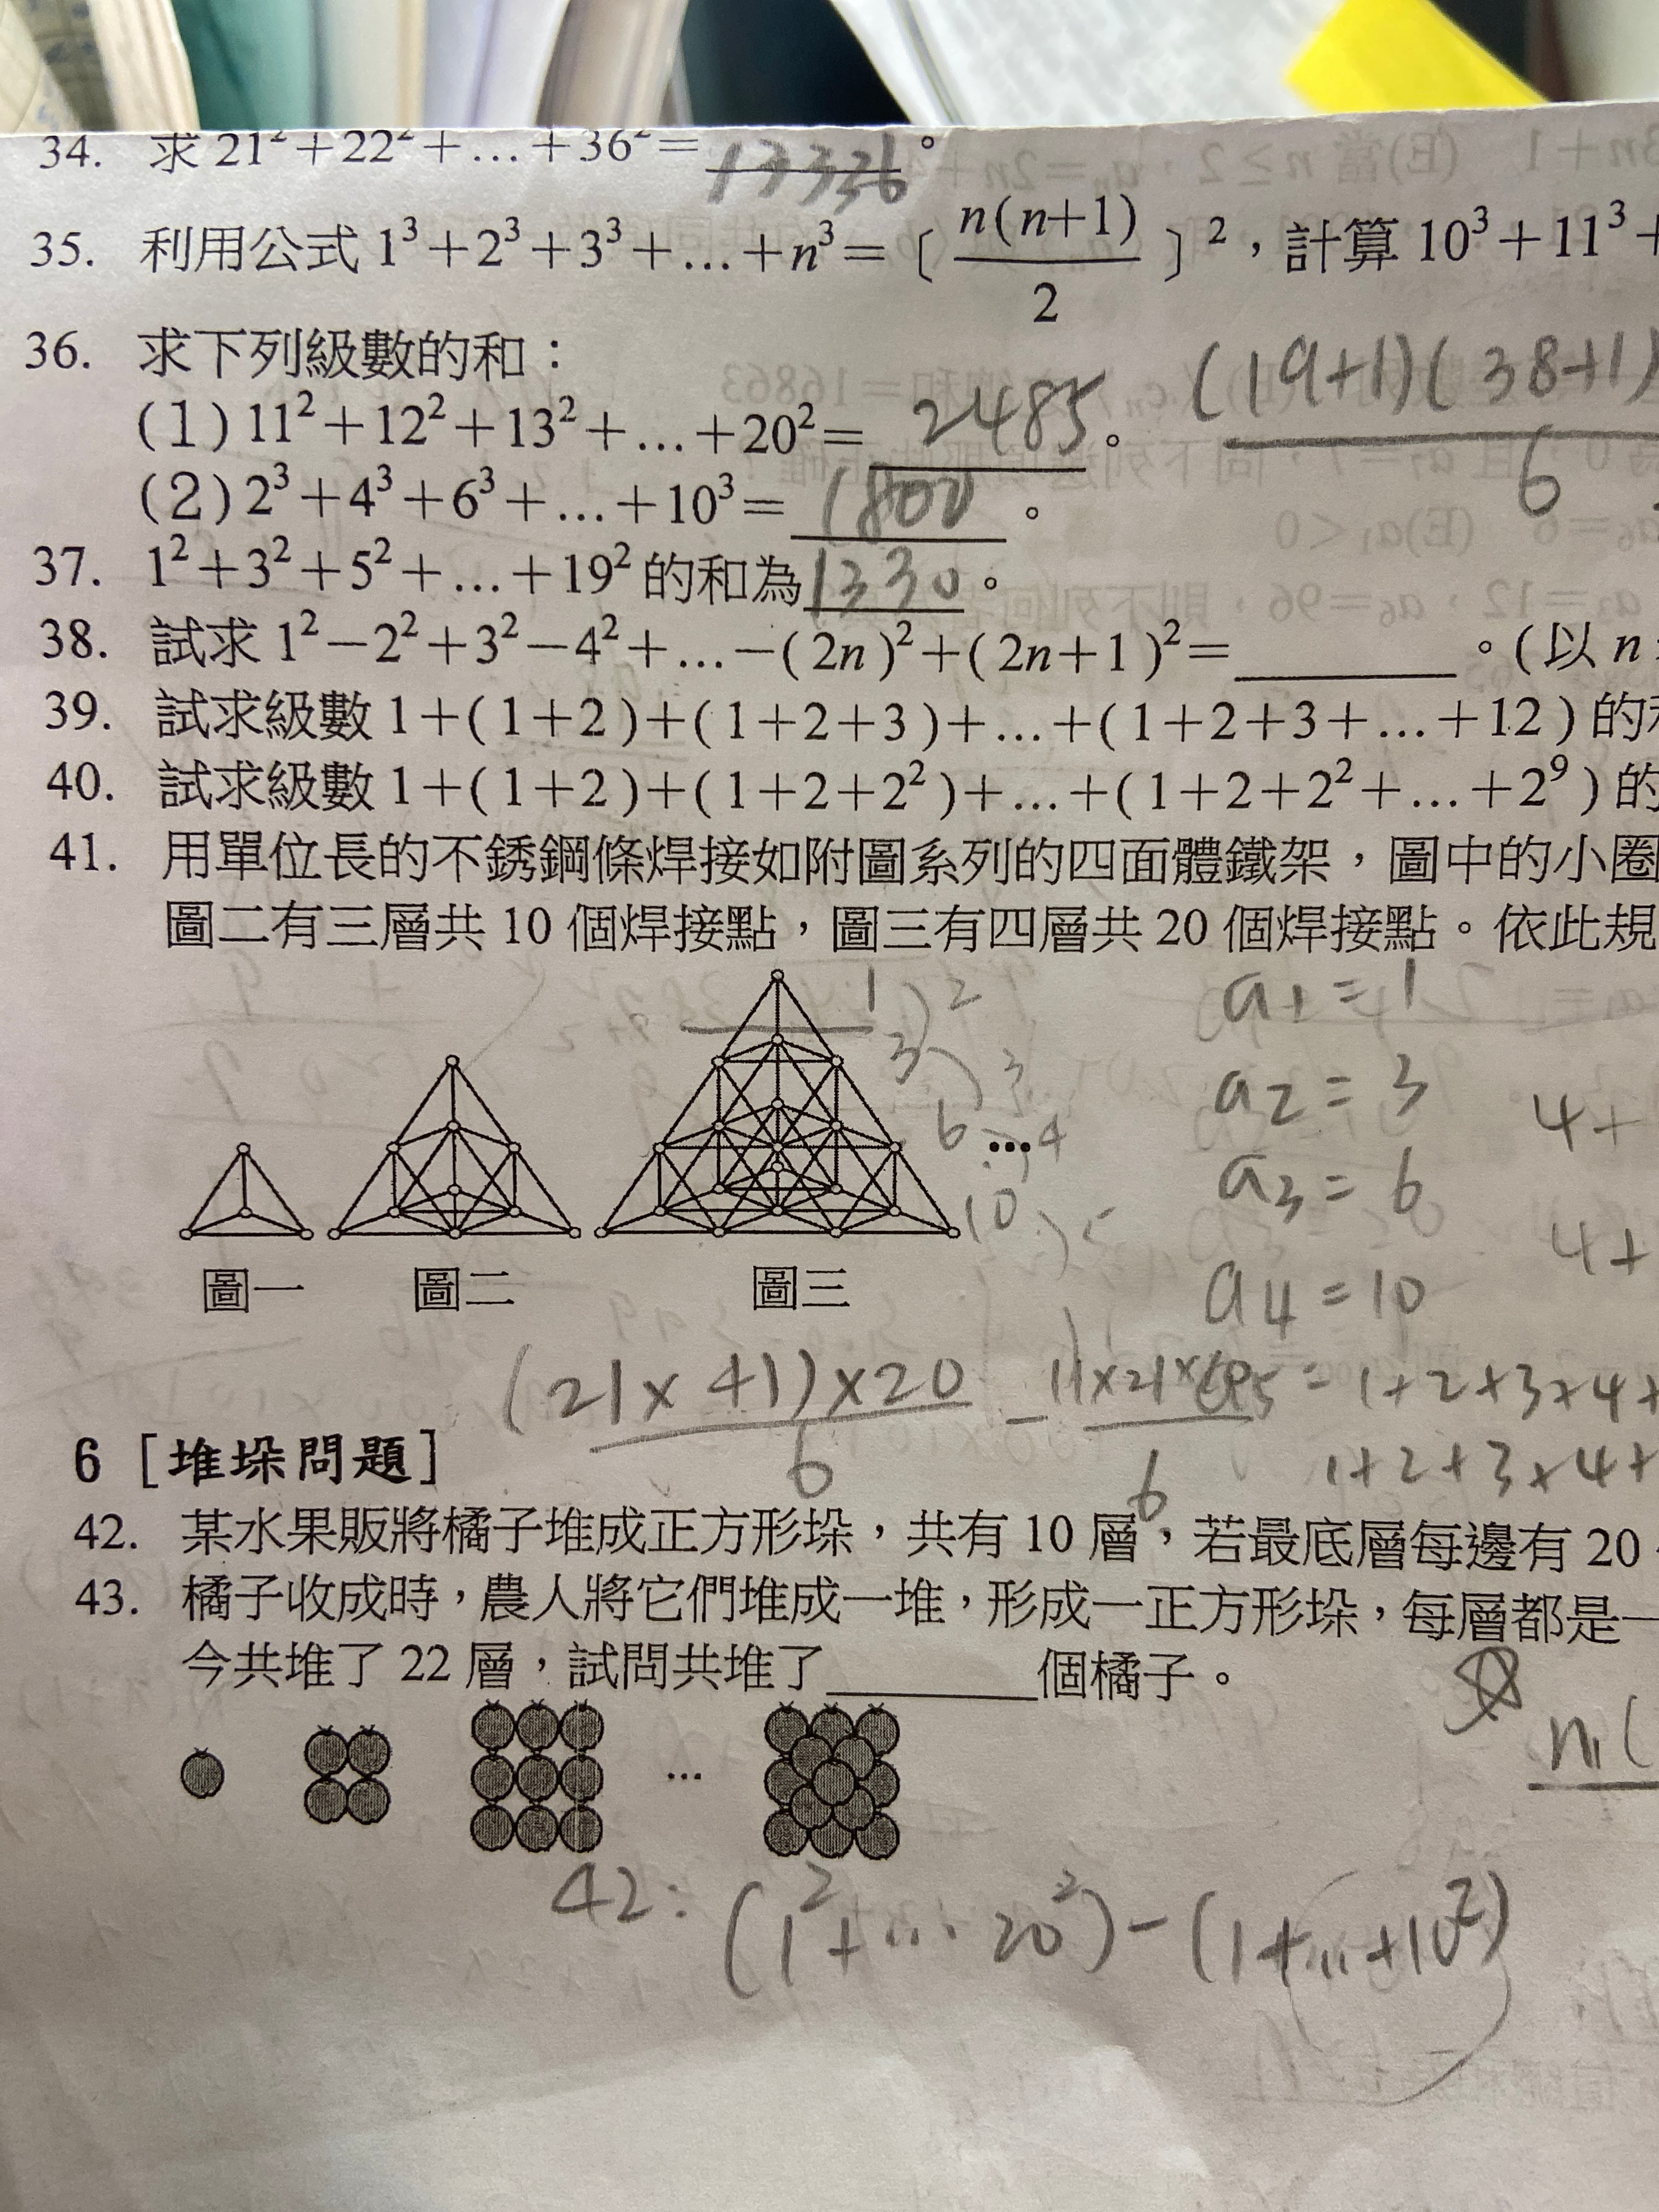 34. 求 21²+22²+…+36²= 13336 。
35. 利用公式 1³+2³+3³+…+n³=〔n(n+1)/2〕²，計算 10³+11³+
36. 求下列級數的和：
(19+1)(38+1)
6
(1) 11²+12²+13²+…+20²= 2485 。
(2) 2³+4³+6³+…+10³= 1800 。
37. 1²+3²+5²+…+19² 的和為 1330 。
38. 試求 1²−2²+3²−4²+…−(2n)²+(2n+1)²=______。(以 n
39. 試求級數 1+(1+2)+(1+2+3)+…+(1+2+3+…+12) 的
40. 試求級數 1+(1+2)+(1+2+2²)+…+(1+2+2²+…+2⁹) 的
41. 用單位長的不銹鋼條焊接如附圖系列的四面體鐵架，圖中的小圈
圖二有三層共 10 個焊接點，圖三有四層共 20 個焊接點。依此規
1 2
3 3
6 4
10 5
…
a1=1
a2=3
a3=6
a4=10
4+
4+
圖一 圖二 圖三
(21×41)×20
6
1+2+3+4+
1+2+3+4+
6
6［堆垛問題］
42. 某水果販將橘子堆成正方形垛，共有 10 層，若最底層每邊有 20
43. 橘子收成時，農人將它們堆成一堆，形成一正方形垛，每層都是一
今共堆了 22 層，試問共堆了______個橘子。
n(
…
42: (1²+…20²)−(1+…+10²)